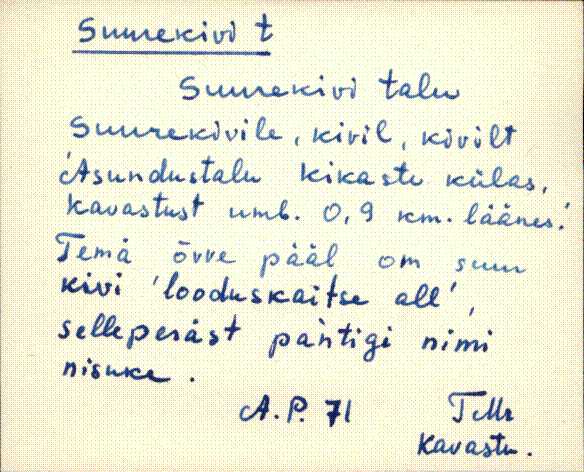 Suurekivi t
Suurekivi talu
Suurekivile, kivil, kivilt
'Asundustalu Kikaste külas,
Kavastust umb. 0,9 km. läänes.'
Temä õvve pääl om suur
kivi 'looduskaitse all',
selleperäst pańtigi nimi
nisuke.
A.P. 71 TMr
Kavastu.